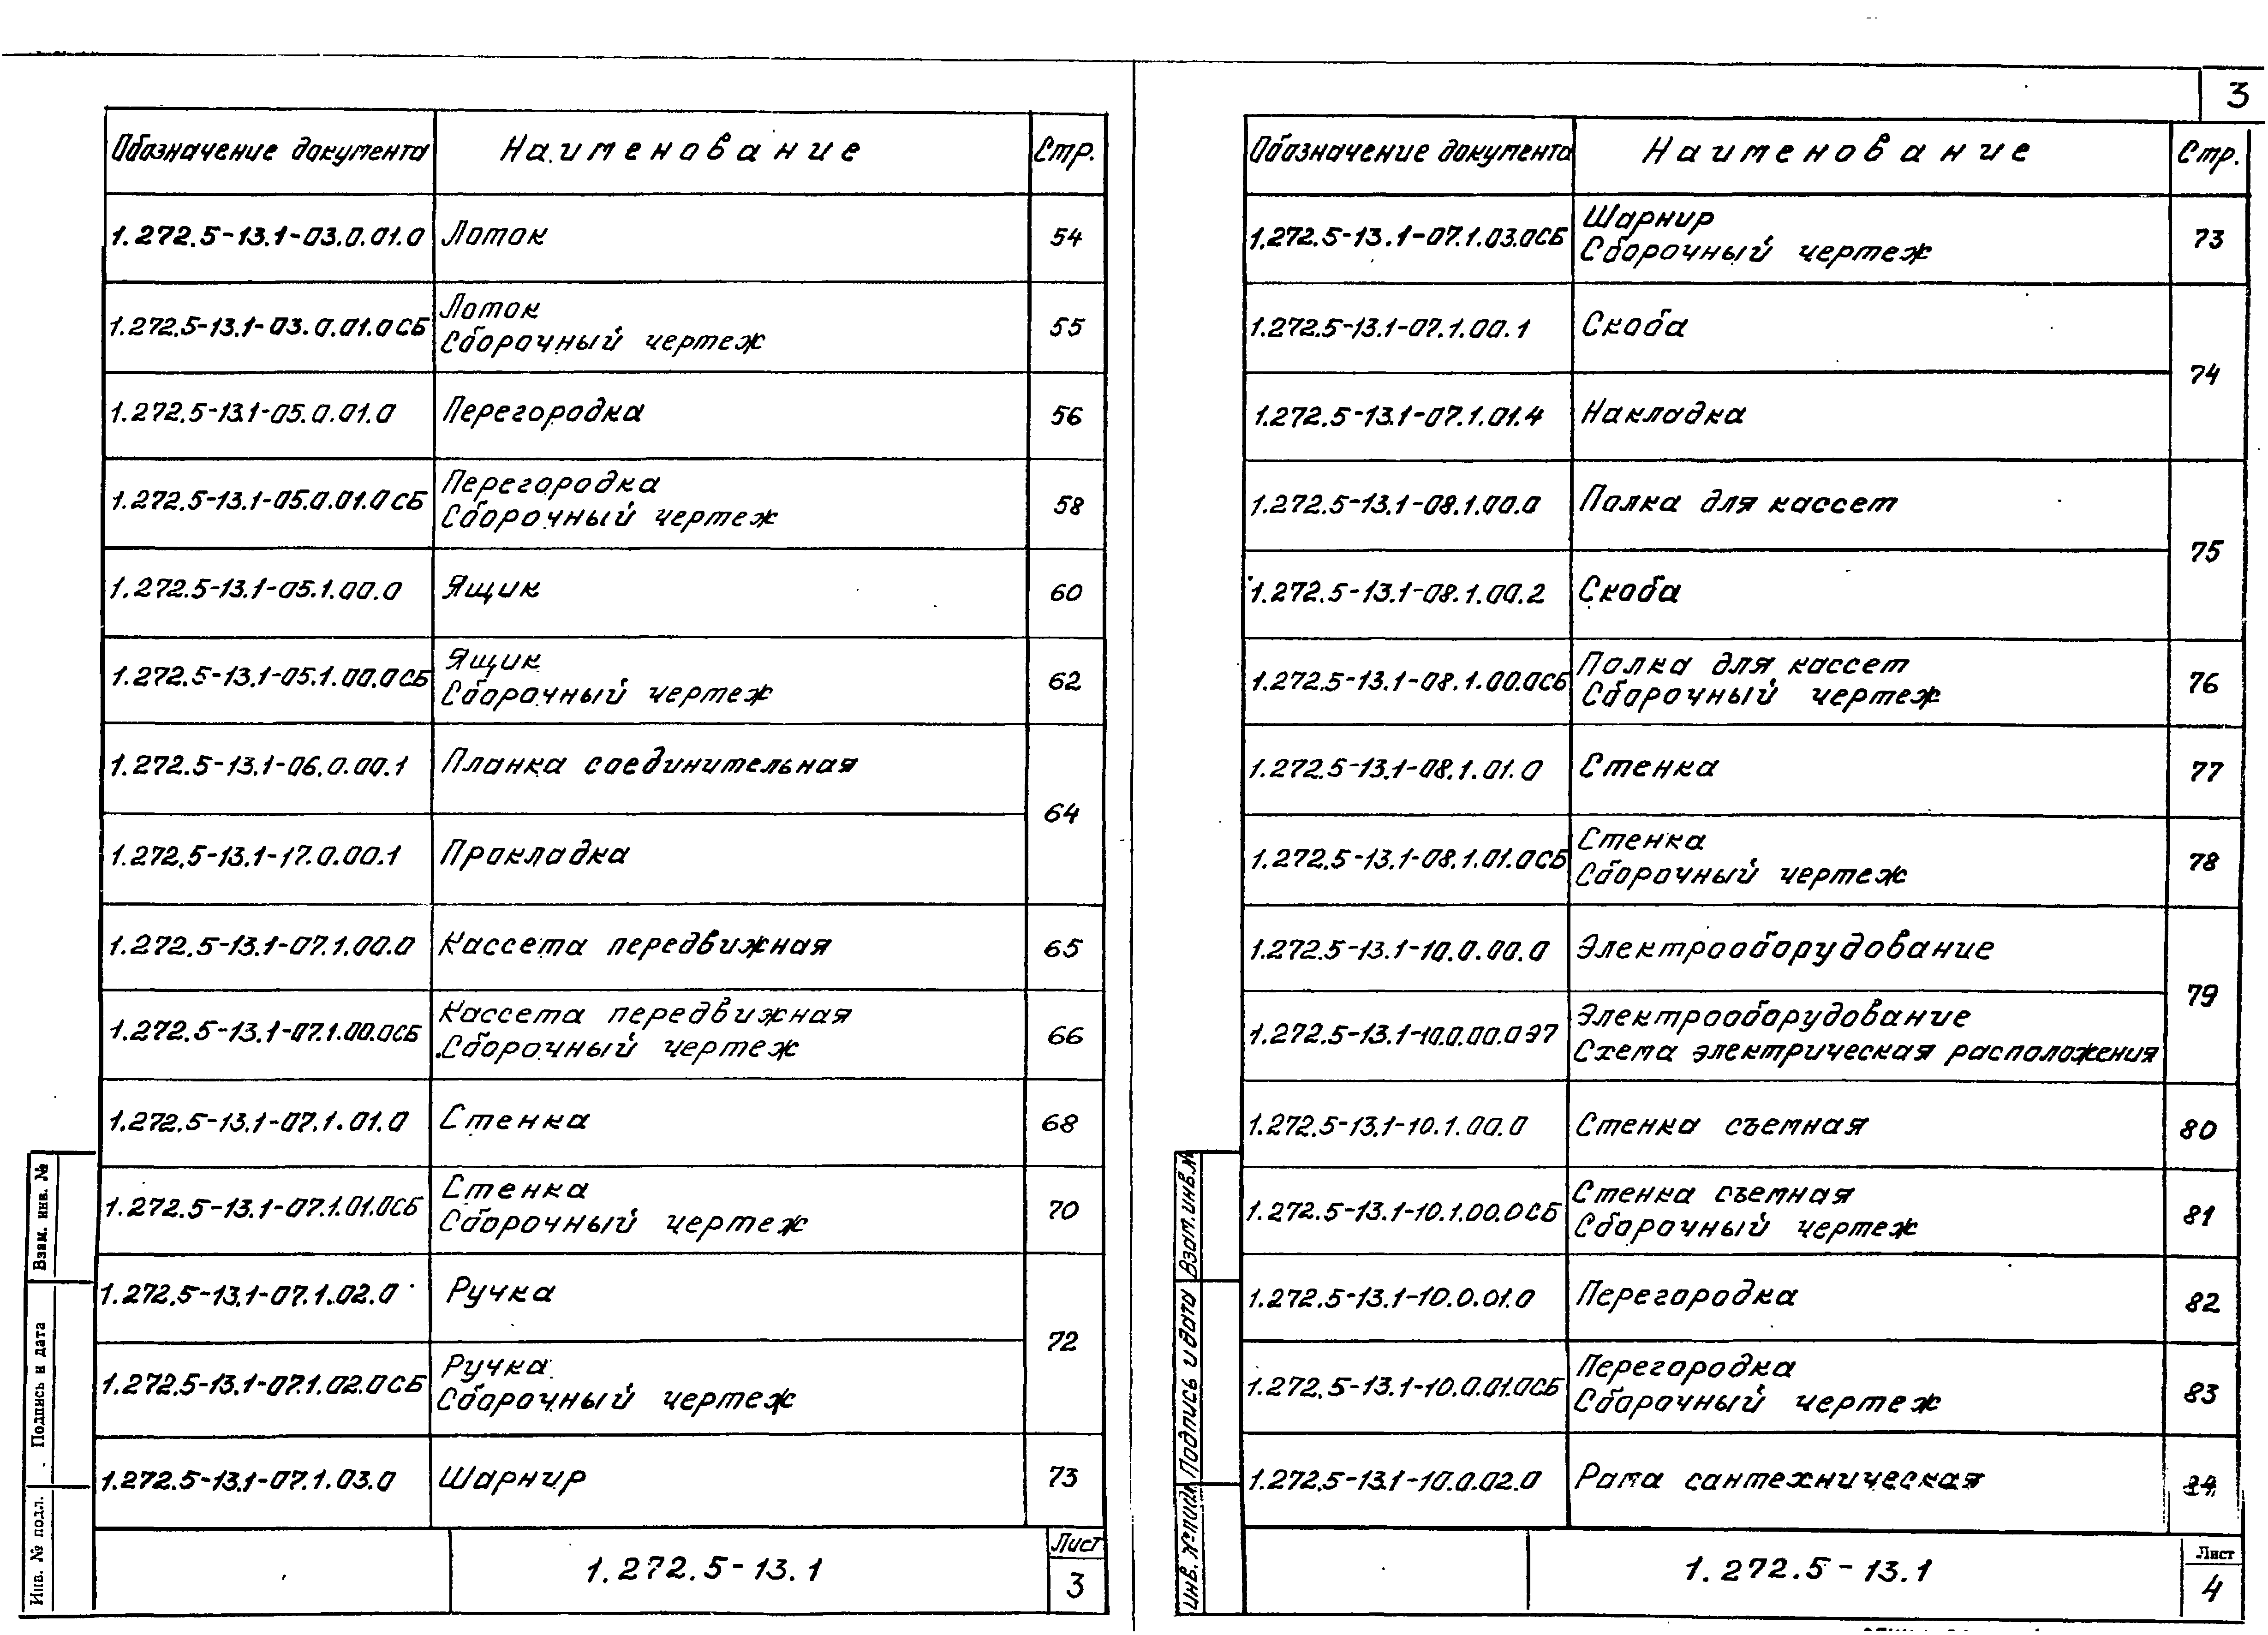 3
Обозначение документа Наименование Стр.
1.272.5-13.1-03.0.01.0 Лоток 54
1.272.5-13.1-03.0.01.0СБ Лоток
Сборочный чертеж 55
1.272.5-13.1-05.0.01.0 Перегородка 56
1.272.5-13.1-05.0.01.0СБ Перегородка
Сборочный чертеж 58
1.272.5-13.1-05.1.00.0 Ящик 60
1.272.5-13.1-05.1.00.0СБ Ящик
Сборочный чертеж 62
1.272.5-13.1-06.0.00.1 Планка соединительная
64
1.272.5-13.1-17.0.00.1 Прокладка
1.272.5-13.1-07.1.00.0 Кассета передвижная 65
1.272.5-13.1-07.1.00.0СБ Кассета передвижная
Сборочный чертеж 66
1.272.5-13.1-07.1.01.0 Стенка 68
1.272.5-13.1-07.1.01.0СБ Стенка
Сборочный чертеж 70
1.272.5-13.1-07.1.02.0 Ручка
72
1.272.5-13.1-07.1.02.0СБ Ручка
Сборочный чертеж
1.272.5-13.1-07.1.03.0 Шарнир 73
1.272.5-13.1
Лист
3
Взам. инв. №
Подпись и дата
Инв. № подл.
Обозначение документа Наименование Стр.
1.272.5-13.1-07.1.03.0СБ Шарнир
Сборочный чертеж 73
1.272.5-13.1-07.1.00.1 Скоба
74
1.272.5-13.1-07.1.01.4 Накладка
1.272.5-13.1-08.1.00.0 Полка для кассет
75
1.272.5-13.1-08.1.00.2 Скоба
1.272.5-13.1-08.1.00.0СБ Полка для кассет
Сборочный чертеж 76
1.272.5-13.1-08.1.01.0 Стенка 77
1.272.5-13.1-08.1.01.0СБ Стенка
Сборочный чертеж 78
1.272.5-13.1-10.0.00.0 Электрооборудование
79
1.272.5-13.1-10.0.00.0Э7 Электрооборудование
Схема электрическая расположения
1.272.5-13.1-10.1.00.0 Стенка съемная 80
1.272.5-13.1-10.1.00.0СБ Стенка съемная
Сборочный чертеж 81
1.272.5-13.1-10.0.01.0 Перегородка 82
1.272.5-13.1-10.0.01.0СБ Перегородка
Сборочный чертеж 83
1.272.5-13.1-10.0.02.0 Рама сантехническая 84
1.272.5-13.1
Лист
4
Взам. инв. №
Подпись и дата
Инв. № подл.